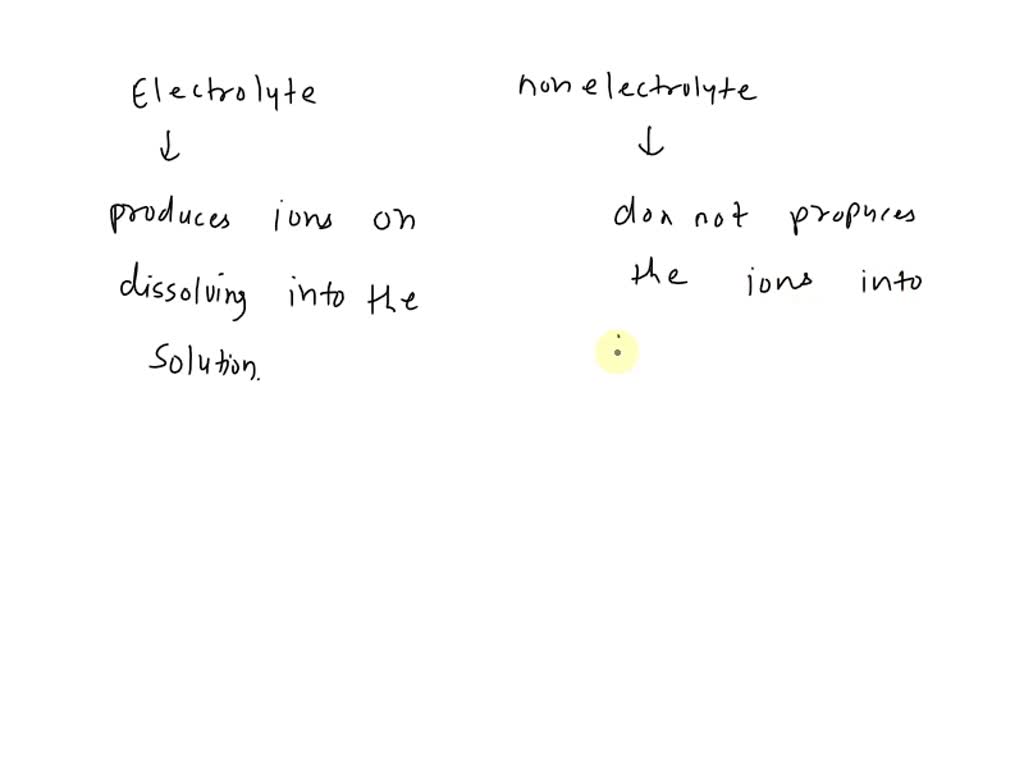 Electrolyte
↓
produces ions on
dissolving into the
Solution.
non electrolyte
↓
don not propuces
the ions into